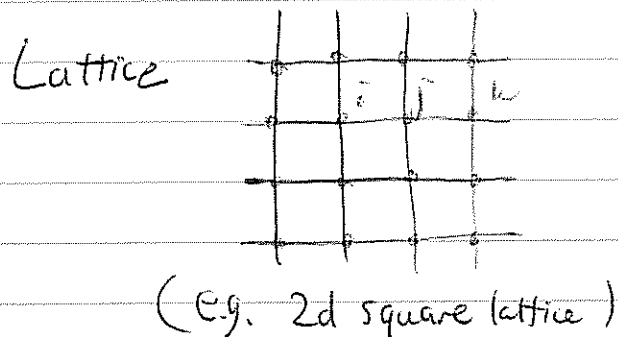 Lattice
i j k
(e.g. 2d square lattice)